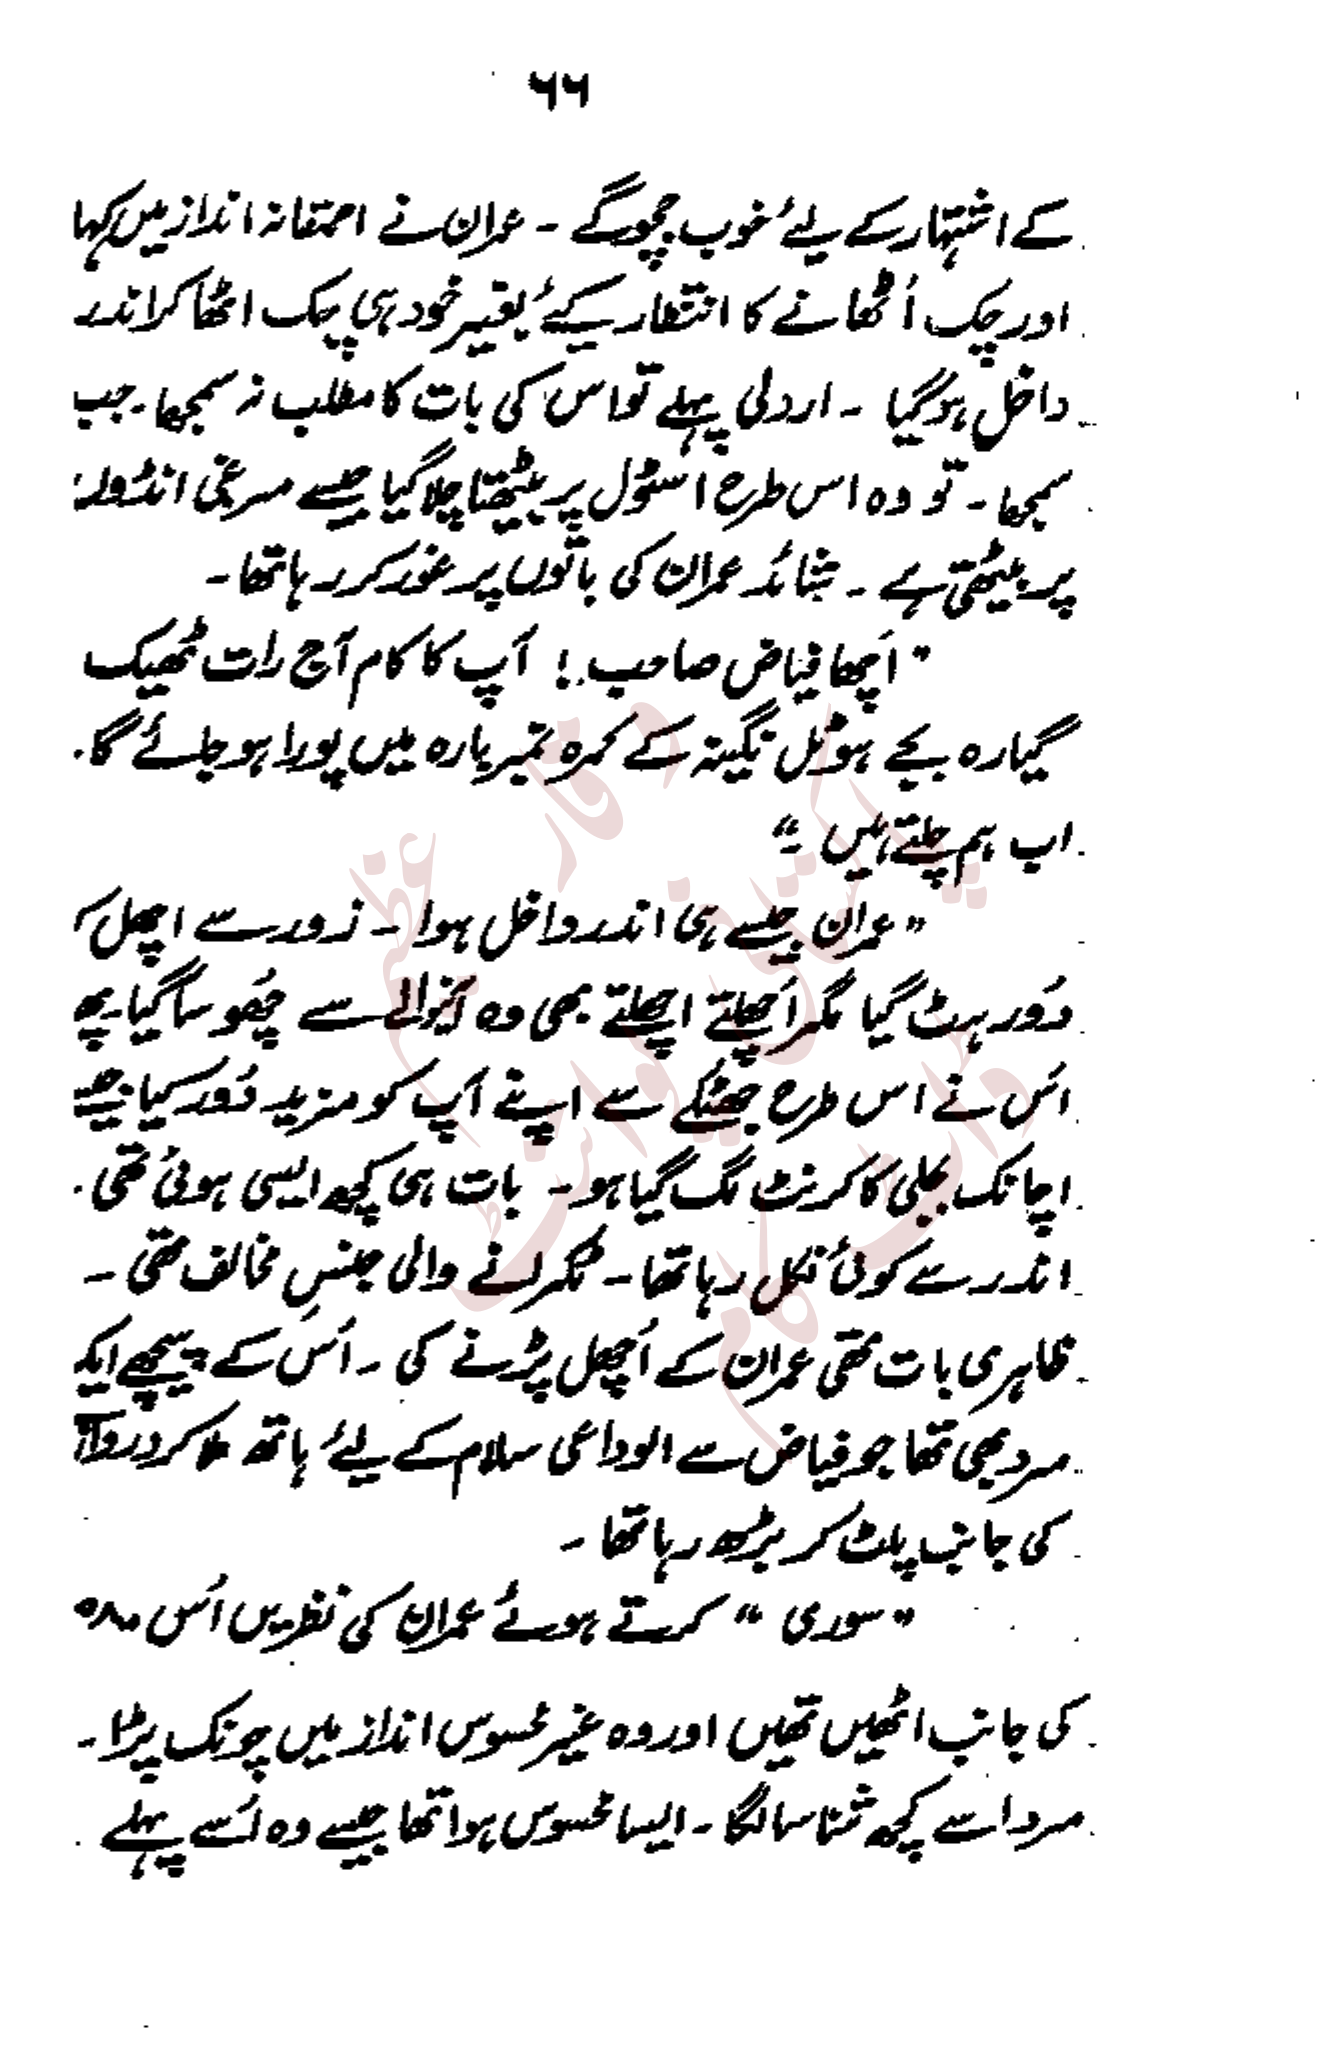 ۶۶
کے اشتہار کے لیے خوب جچو گے ۔ عمران نے احمقانہ انداز میں کہا
اور چک اُٹھانے کا انتظار کیے بغیر خود ہی چک اٹھا کر اندر
داخل ہو گیا ۔ اردلی پہلے تو اس کی بات کا مطلب نہ سمجھا ۔ جب
سمجھا ۔ تو وہ اس طرح اسٹول پر بیٹھتا چلا گیا جیسے مرغی انڈوں
پر بیٹھتی ہے ۔ شائد عمران کی باتوں پر غور کر رہا تھا ۔
" اَچھا فیاض صاحب ! آپ کا کام آج رات ٹھیک
گیارہ بجے ہوٹل نگینہ کے کمرہ نمبر بارہ میں پورا ہو جائے گا ۔
اب ہم چلتے ہیں ۔"
" عمران جیسے ہی اندر داخل ہوا ۔ زور سے اچھل کر
دُور ہٹ گیا مگر اَچھلتے اچھلتے بھی وہ آنیوالے سے چُھو سا گیا ۔ پھر
اُس نے اس طرح جھٹکے سے اپنے آپ کو مزید دُور کیا جیسے
اچانک بجلی کا کرنٹ لگ گیا ہو ۔ بات ہی کچھ ایسی ہوئی تھی ۔
اندر سے کوئی نکل رہا تھا ۔ ٹکرانے والی جنسِ مخالف تھی ۔
ظاہری بات تھی عمران کے اُچھل پڑنے کی ۔ اُس کے پیچھے ایک
مرد بھی تھا جو فیاض سے الوداعی سلام کے لیے ہاتھ ملا کر دروازہ
کی جانب پلٹ کر بڑھ رہا تھا ۔
" سوری " کرتے ہوئے عمران کی نظریں اُس مرد
کی جانب اٹھیں تھیں اور وہ غیر محسوس انداز میں چونک پڑا ۔
مرد اسے کچھ شناسا لگا ۔ ایسا محسوس ہوا تھا جیسے وہ اُسے پہلے
وقار عظیم
پاکستانی پوائنٹ
ڈاٹ کام